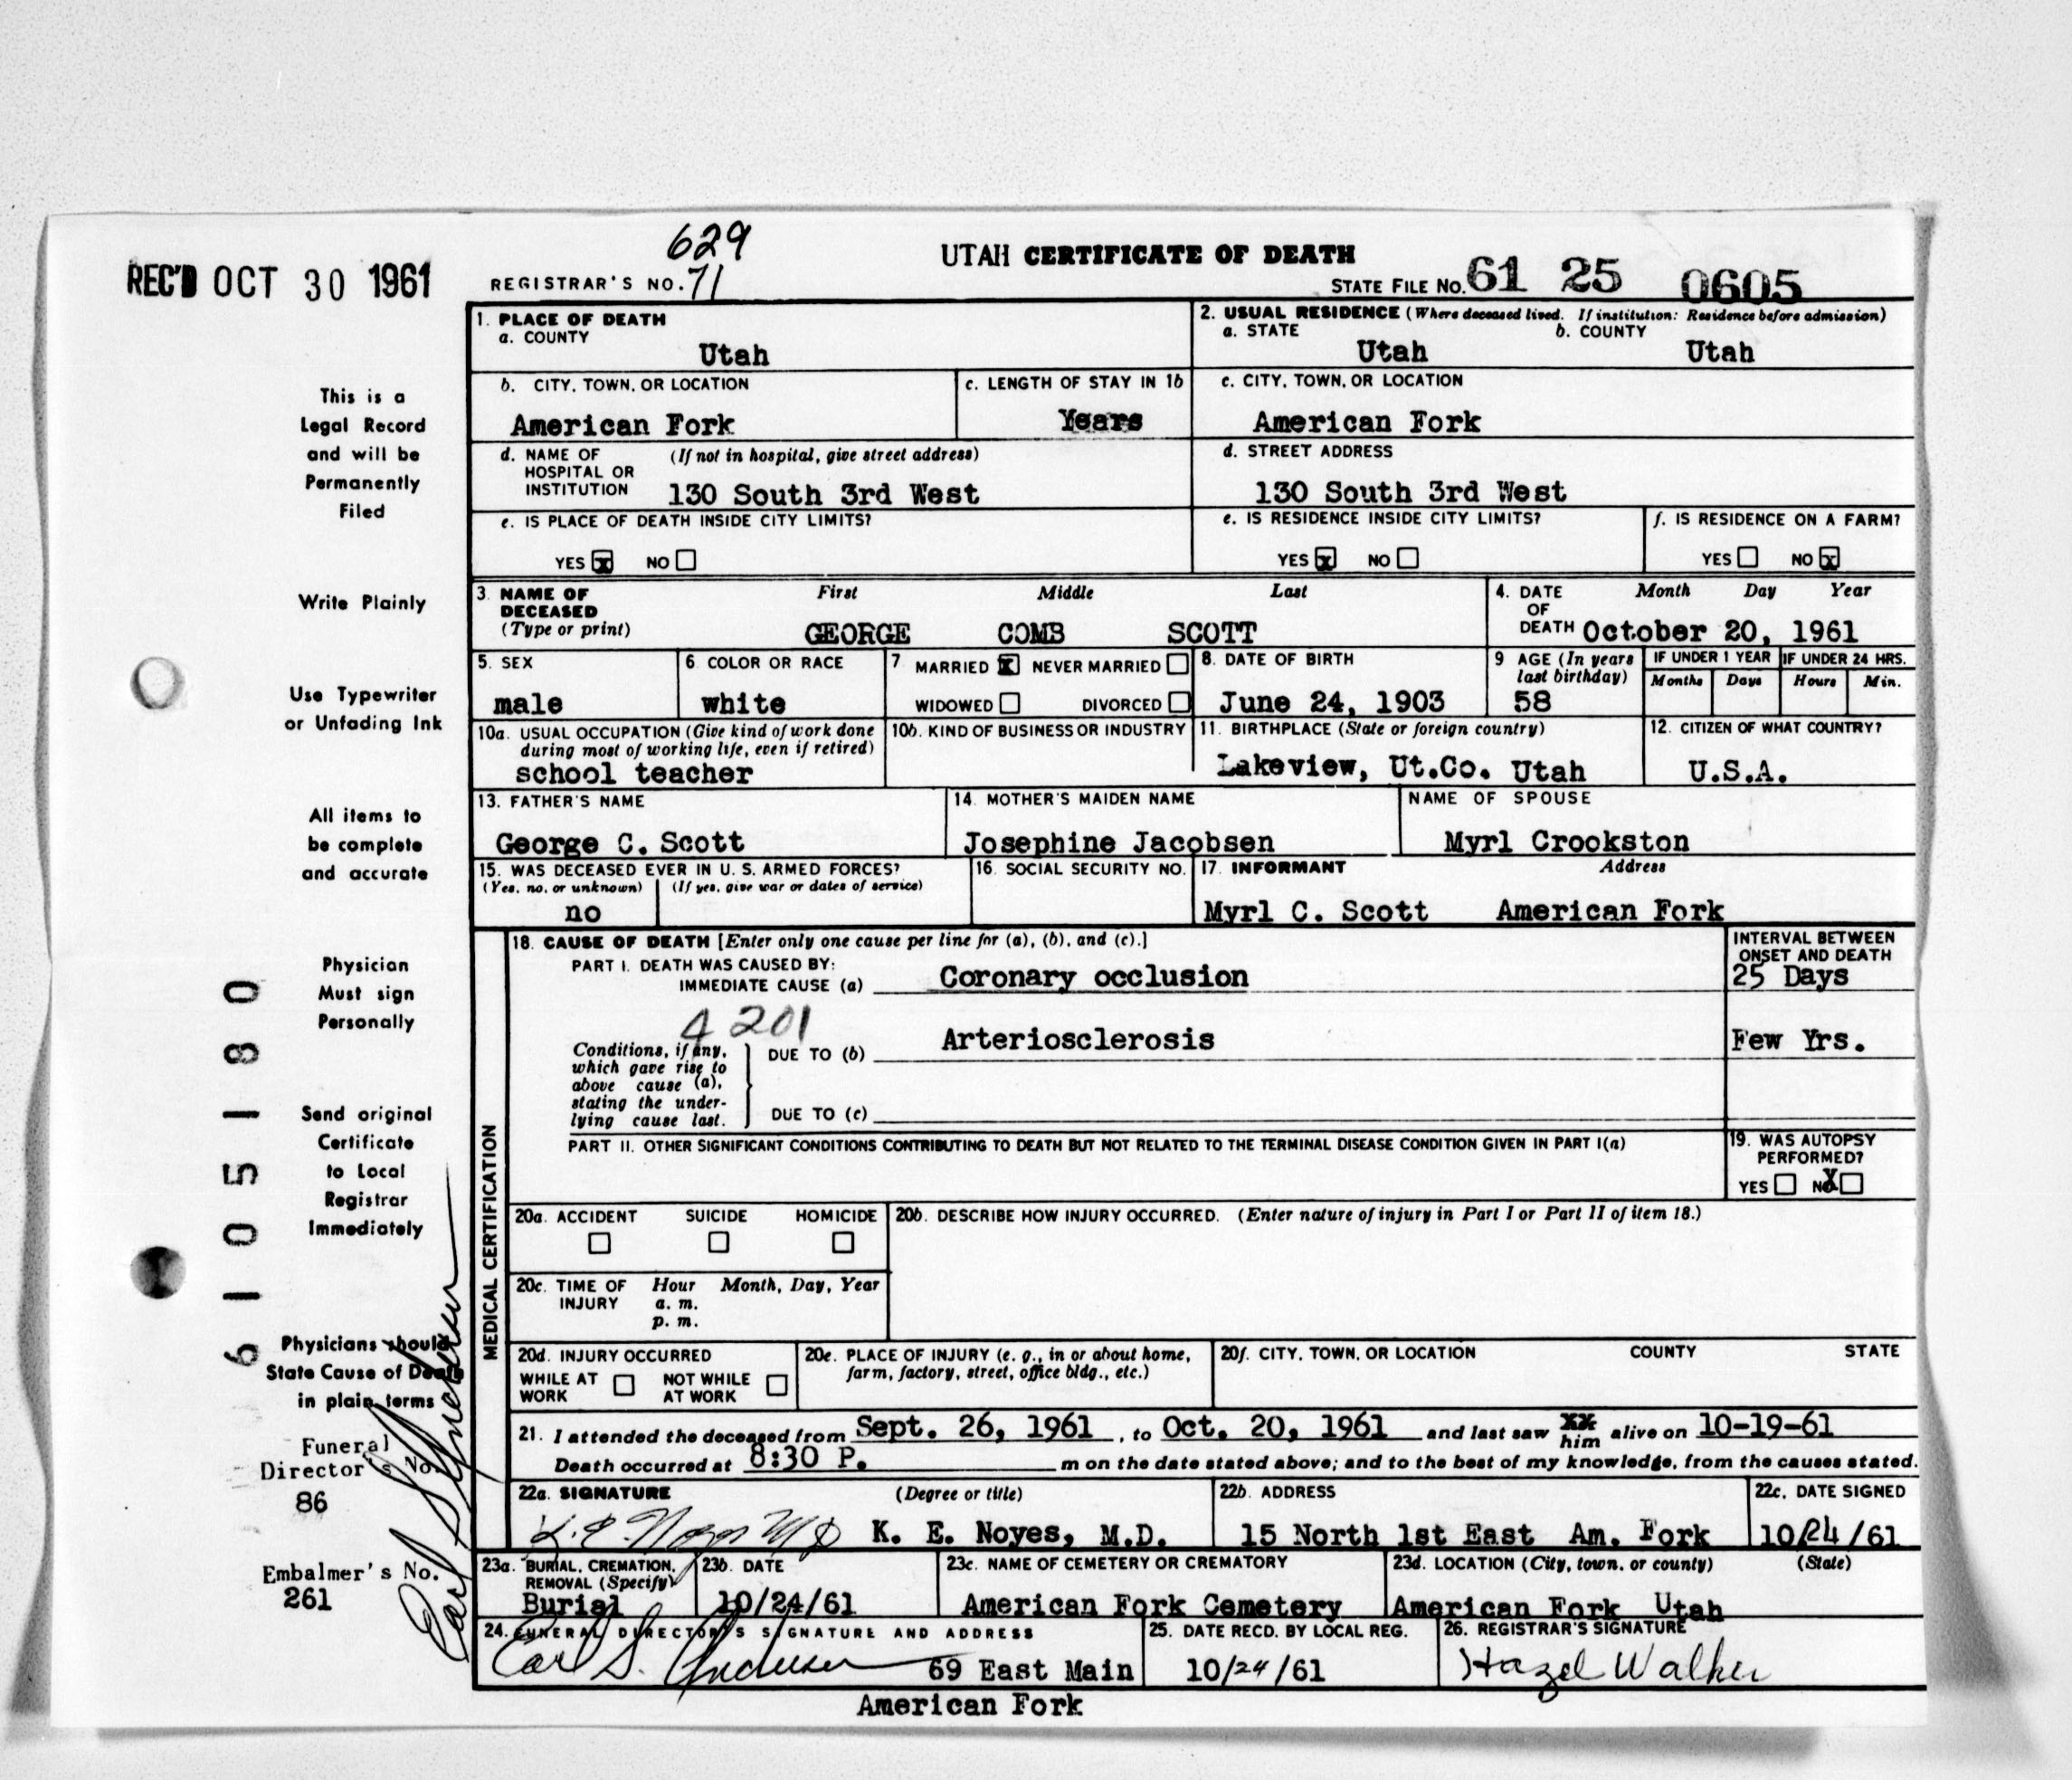 629
REC'D OCT 30 1961
REGISTRAR'S NO. 71
UTAH CERTIFICATE OF DEATH
STATE FILE NO. 61 25 0605
1. PLACE OF DEATH
a. COUNTY
Utah
2. USUAL RESIDENCE (Where deceased lived. If institution: Residence before admission)
a. STATE
Utah
b. COUNTY
Utah
b. CITY, TOWN, OR LOCATION
American Fork
c. LENGTH OF STAY IN 1b
Years
c. CITY, TOWN, OR LOCATION
American Fork
d. NAME OF HOSPITAL OR INSTITUTION
(If not in hospital, give street address)
130 South 3rd West
d. STREET ADDRESS
130 South 3rd West
e. IS PLACE OF DEATH INSIDE CITY LIMITS?
YES x NO
e. IS RESIDENCE INSIDE CITY LIMITS?
YES x NO
f. IS RESIDENCE ON A FARM?
YES NO x
3. NAME OF DECEASED
(Type or print)
First Middle Last
GEORGE COMB SCOTT
4. DATE OF DEATH
Month Day Year
October 20, 1961
5. SEX
male
6 COLOR OR RACE
white
7 MARRIED X NEVER MARRIED
WIDOWED DIVORCED
8. DATE OF BIRTH
June 24, 1903
9 AGE (In years last birthday)
58
IF UNDER 1 YEAR
Months Days
IF UNDER 24 HRS.
Hours Min.
10a. USUAL OCCUPATION (Give kind of work done during most of working life, even if retired)
school teacher
10b. KIND OF BUSINESS OR INDUSTRY
11. BIRTHPLACE (State or foreign country)
Lakeview, Ut.Co. Utah
12. CITIZEN OF WHAT COUNTRY?
U.S.A.
13. FATHER'S NAME
George C. Scott
14. MOTHER'S MAIDEN NAME
Josephine Jacobsen
NAME OF SPOUSE
Myrl Crookston
15. WAS DECEASED EVER IN U. S. ARMED FORCES?
(Yes, no, or unknown) (If yes, give war or dates of service)
no
16. SOCIAL SECURITY NO.
17. INFORMANT Address
Myrl C. Scott American Fork
MEDICAL CERTIFICATION
18. CAUSE OF DEATH [Enter only one cause per line for (a), (b), and (c).]
PART I. DEATH WAS CAUSED BY:
IMMEDIATE CAUSE (a) Coronary occlusion
INTERVAL BETWEEN ONSET AND DEATH
25 Days
4201
Conditions, if any, which gave rise to above cause (a), stating the underlying cause last.
DUE TO (b) Arteriosclerosis
Few Yrs.
DUE TO (c)
PART II. OTHER SIGNIFICANT CONDITIONS CONTRIBUTING TO DEATH BUT NOT RELATED TO THE TERMINAL DISEASE CONDITION GIVEN IN PART I(a)
19. WAS AUTOPSY PERFORMED?
YES NO X
20a. ACCIDENT SUICIDE HOMICIDE
20b. DESCRIBE HOW INJURY OCCURRED. (Enter nature of injury in Part I or Part II of item 18.)
20c. TIME OF INJURY
Hour Month, Day, Year
a. m.
p. m.
20d. INJURY OCCURRED
WHILE AT WORK NOT WHILE AT WORK
20e. PLACE OF INJURY (e. g., in or about home, farm, factory, street, office bldg., etc.)
20f. CITY, TOWN, OR LOCATION COUNTY STATE
21. I attended the deceased from Sept. 26, 1961, to Oct. 20, 1961 and last saw xx him alive on 10-19-61
Death occurred at 8:30 P. m on the date stated above; and to the best of my knowledge, from the causes stated.
22a. SIGNATURE (Degree or title)
K. E. Noyes MD K. E. Noyes, M.D.
22b. ADDRESS
15 North 1st East Am. Fork
22c. DATE SIGNED
10/24/61
23a. BURIAL, CREMATION, REMOVAL (Specify)
Burial
23b. DATE
10/24/61
23c. NAME OF CEMETERY OR CREMATORY
American Fork Cemetery
23d. LOCATION (City, town, or county) (State)
American Fork Utah
24. FUNERAL DIRECTOR'S SIGNATURE AND ADDRESS
Earl S. Anderson 69 East Main
American Fork
25. DATE RECD. BY LOCAL REG.
10/24/61
26. REGISTRAR'S SIGNATURE
Hazel Walker
This is a
Legal Record
and will be
Permanently
Filed
Write Plainly
Use Typewriter
or Unfading Ink
All items to
be complete
and accurate
Physician
Must sign
Personally
Send original
Certificate
to Local
Registrar
Immediately
Physicians should
State Cause of Death
in plain terms
Funeral
Director's No.
86
Embalmer's No.
261
6105180
Earl S. Anderson